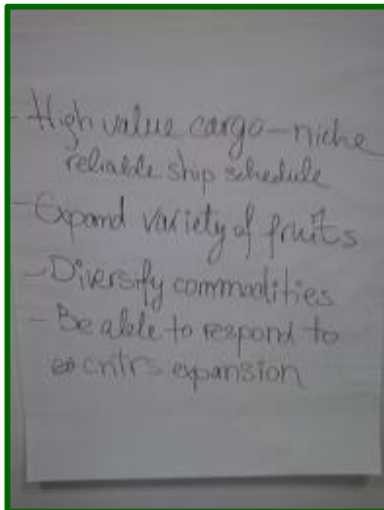 - High value cargo - niche
reliable ship schedule
- Expand variety of fruits
- Diversify commodities
- Be able to respond to
cntrs expansion